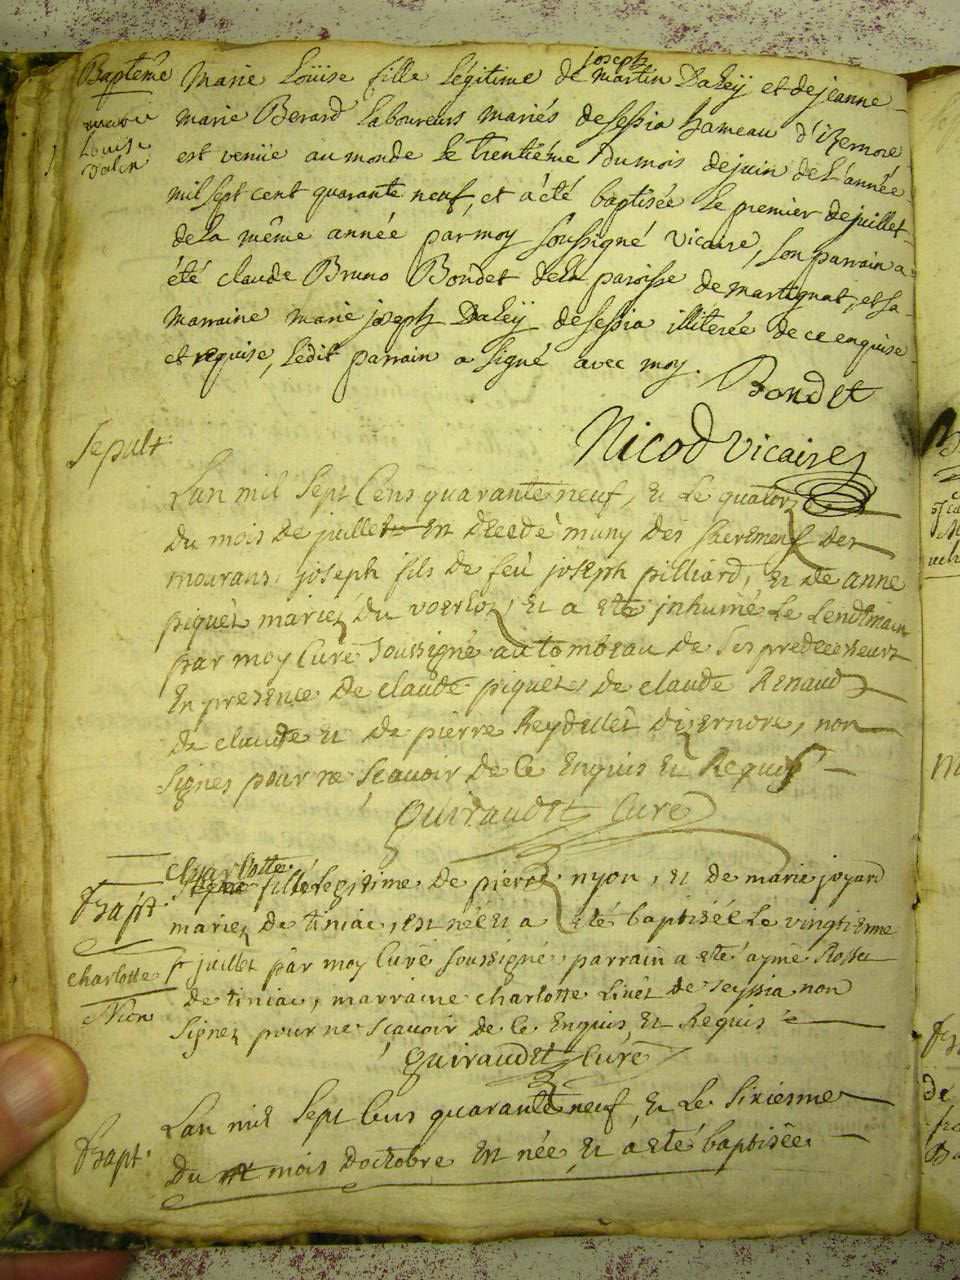 Baptême
marie
Louise
Dalin
joseph
Marie Loüise fille Legitime de martin Daleÿ et de jeanne
marie Berard Laboureurs mariés de sessia hameau d'izernore
est venüe au monde Le trentiéme du mois de juin de L'année
mil sept cent quarante neuf, et a été baptisée Le premier de juillet
de La même année par moy soussigné vicaire, son parrain a
été claude Bruno Bondet de La paroisse de martignat, et sa
marraine marie joseph Daleÿ de sessia illiterée de ce enquise
et requise, Ledit parrain a signé avec moy. Bondet
Nicod vicaire
Sepult.
L'an mil sept Cens quarante neuf, et Le quatorz
du mois de juillet est decedé muny des sacrements des
mourans, joseph fils de feu joseph pilliard, et de anne
piquet mariez du voerloz, et a eté inhumé Le Lendemain
par moy Curé soussigné au tombeau de ses predecesseurs
En presence de claude piquet, de claude Renaud
de claude et de pierre Reydelet d'izernore, non
signes pour ne scavoir de Ce Enquis et Requis
Guiraudet Curé
Bapt.
charlotte
Nion
charlotte
fille Legitime de pierre nyon, et de marie joyard
mariez de tiniac, est née et a eté baptisée Le vingtienme
juillet par moy Curé soussigné, parrain a eté aymé Rosset
de tiniac, marraine charlotte Livet de seyssia non
signez pour ne scavoir de Ce Enquis, et Requis
Guiraudet Curé
Bapt.
L'an mil sept Cens quarante neuf, et Le sixiesme
du mois d'octobre est née, et a eté baptisée